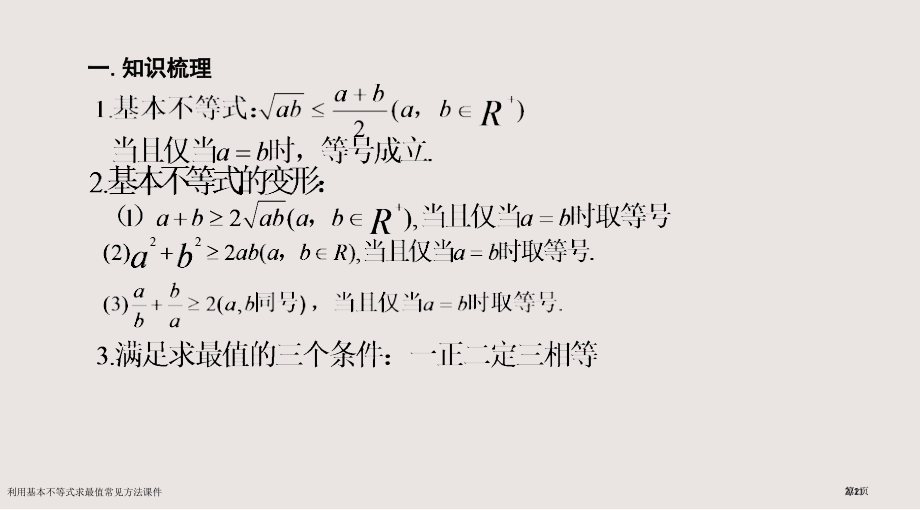 一.知识梳理
1.基本不等式：√ab ≤ (a+b)/2 (a，b∈R⁺)
当且仅当a=b时，等号成立.
2.基本不等式的变形：
（1）a+b≥2√ab(a，b∈R⁺),当且仅当a=b时取等号
(2)a²+b²≥2ab(a，b∈R),当且仅当a=b时取等号.
(3)a/b+b/a≥2(a,b同号)，当且仅当a=b时取等号.
3.满足求最值的三个条件：一正二定三相等
利用基本不等式求最值常见方法课件